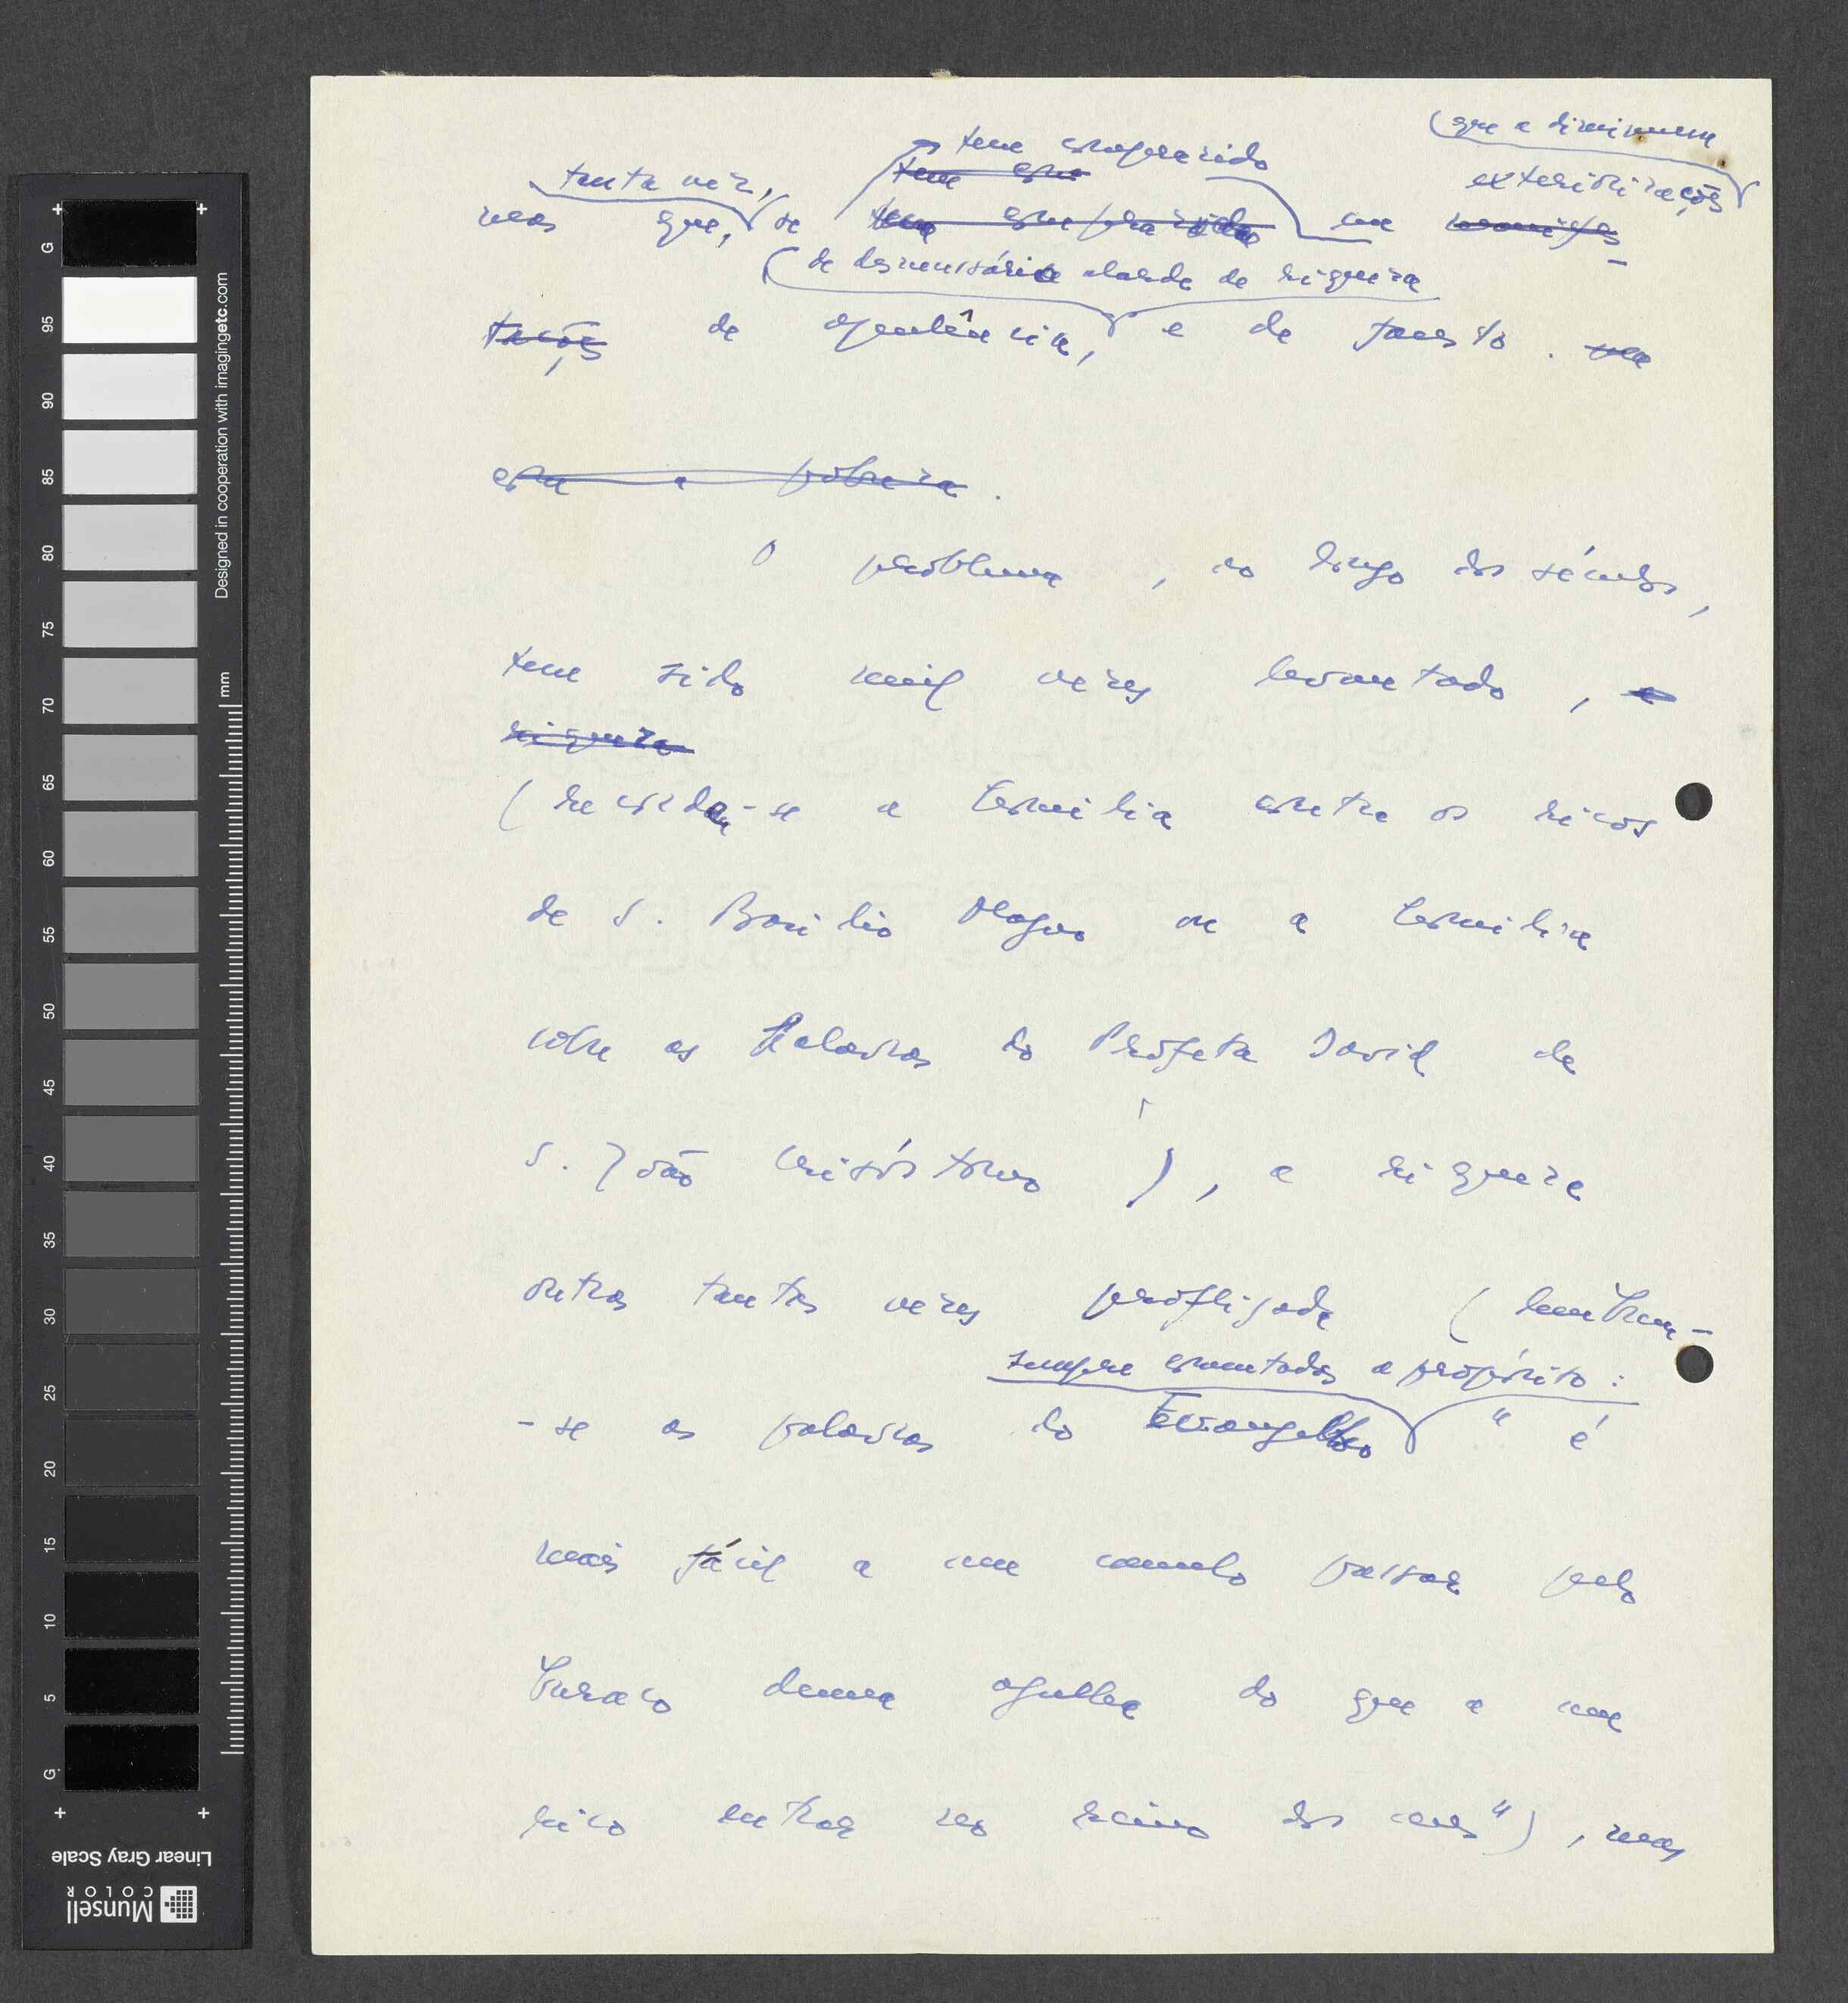 (que a diminuem
tem comparado
tem com
exteriorizações
tanta vez,
mas que, se tem comparado em manifes-
(de desnecessário alarde de riqueza
tações de opulência, e de fausto.
com a pobreza.
O problema, ao longo dos séculos,
tem sido mil vezes levantado, a
riqueza
(recorda-se a homilia contra os ricos
de S. Basílio Magno ou a homilia
sobre as Palavras do Profeta David de
S. João Crisóstomo), a riqueza
outras tantas vezes profligada (lembram-
sempre comentadas a propósito:
-se as palavras do Evangelho " é
mais fácil a um camelo passar pelo
buraco duma agulha do que a um
rico entrar no reino dos ceus"), mas
G
95
90
85
80
75
70
65
60
55
50
45
40
35
30
25
20
15
10
5
G
mm
Designed in cooperation with imagingetc.com
Linear Gray Scale
Munsell
COLOR